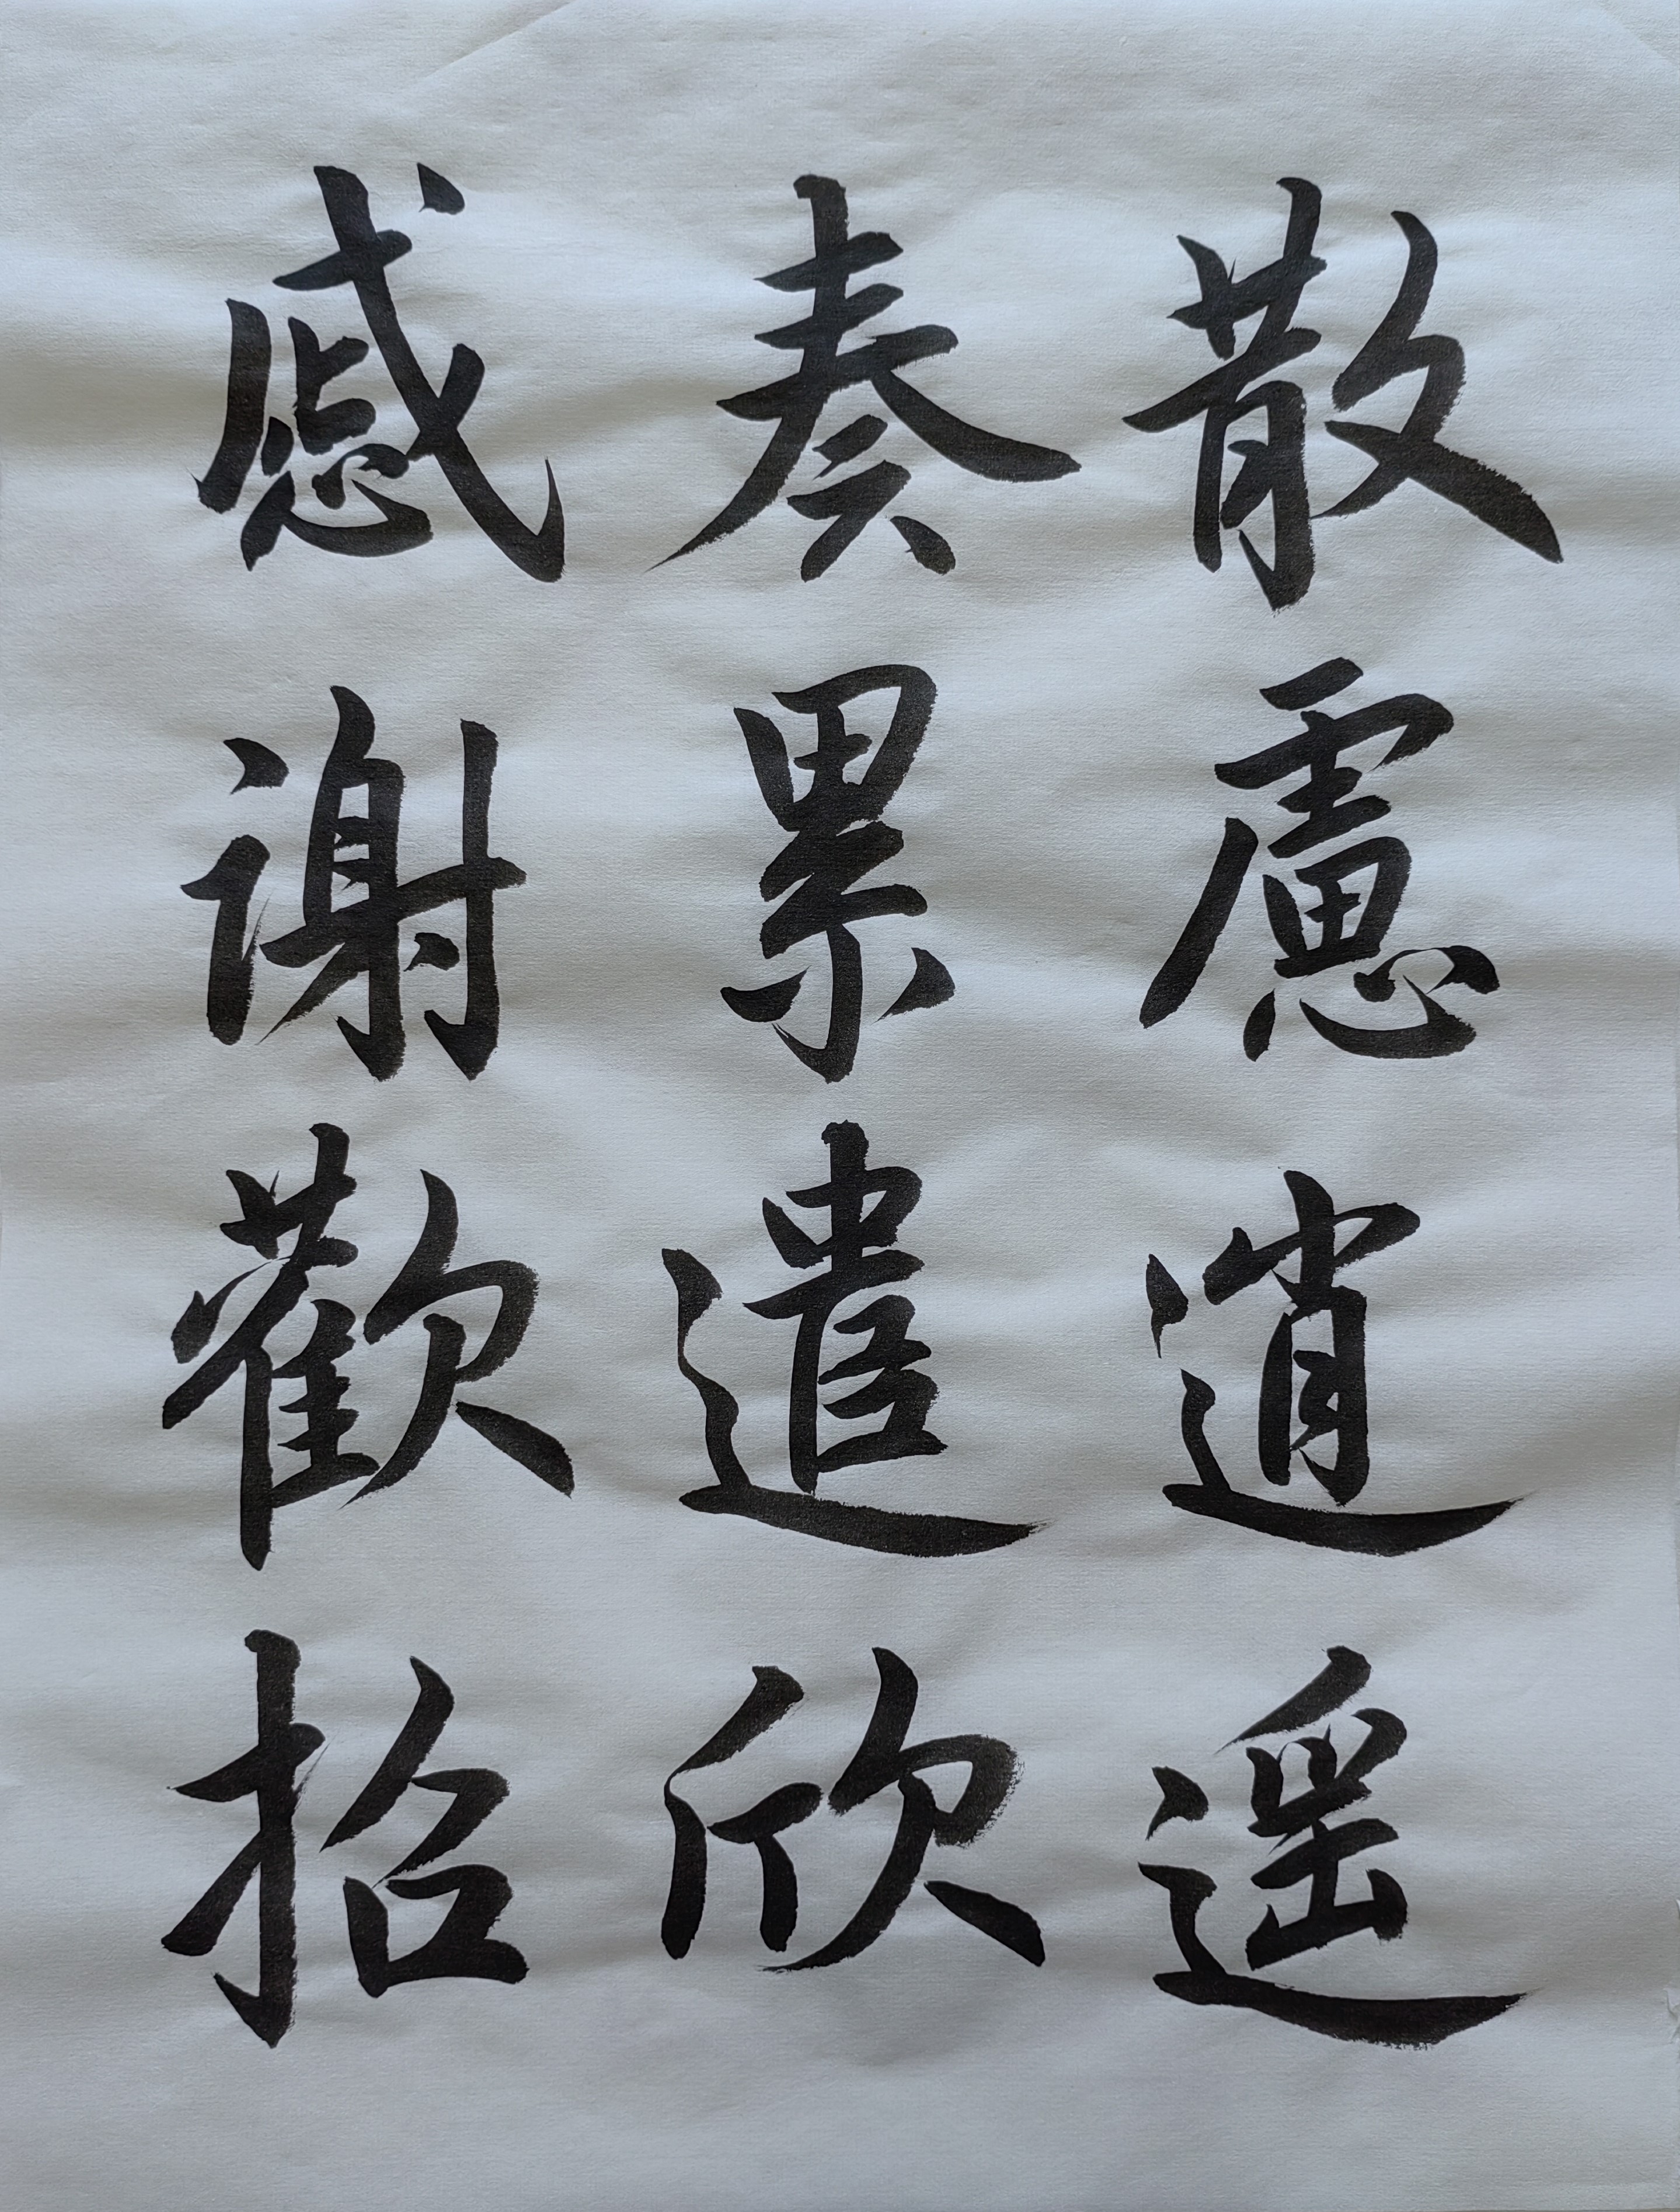 散慮逍遥
奏累遣欣
慼謝歡招